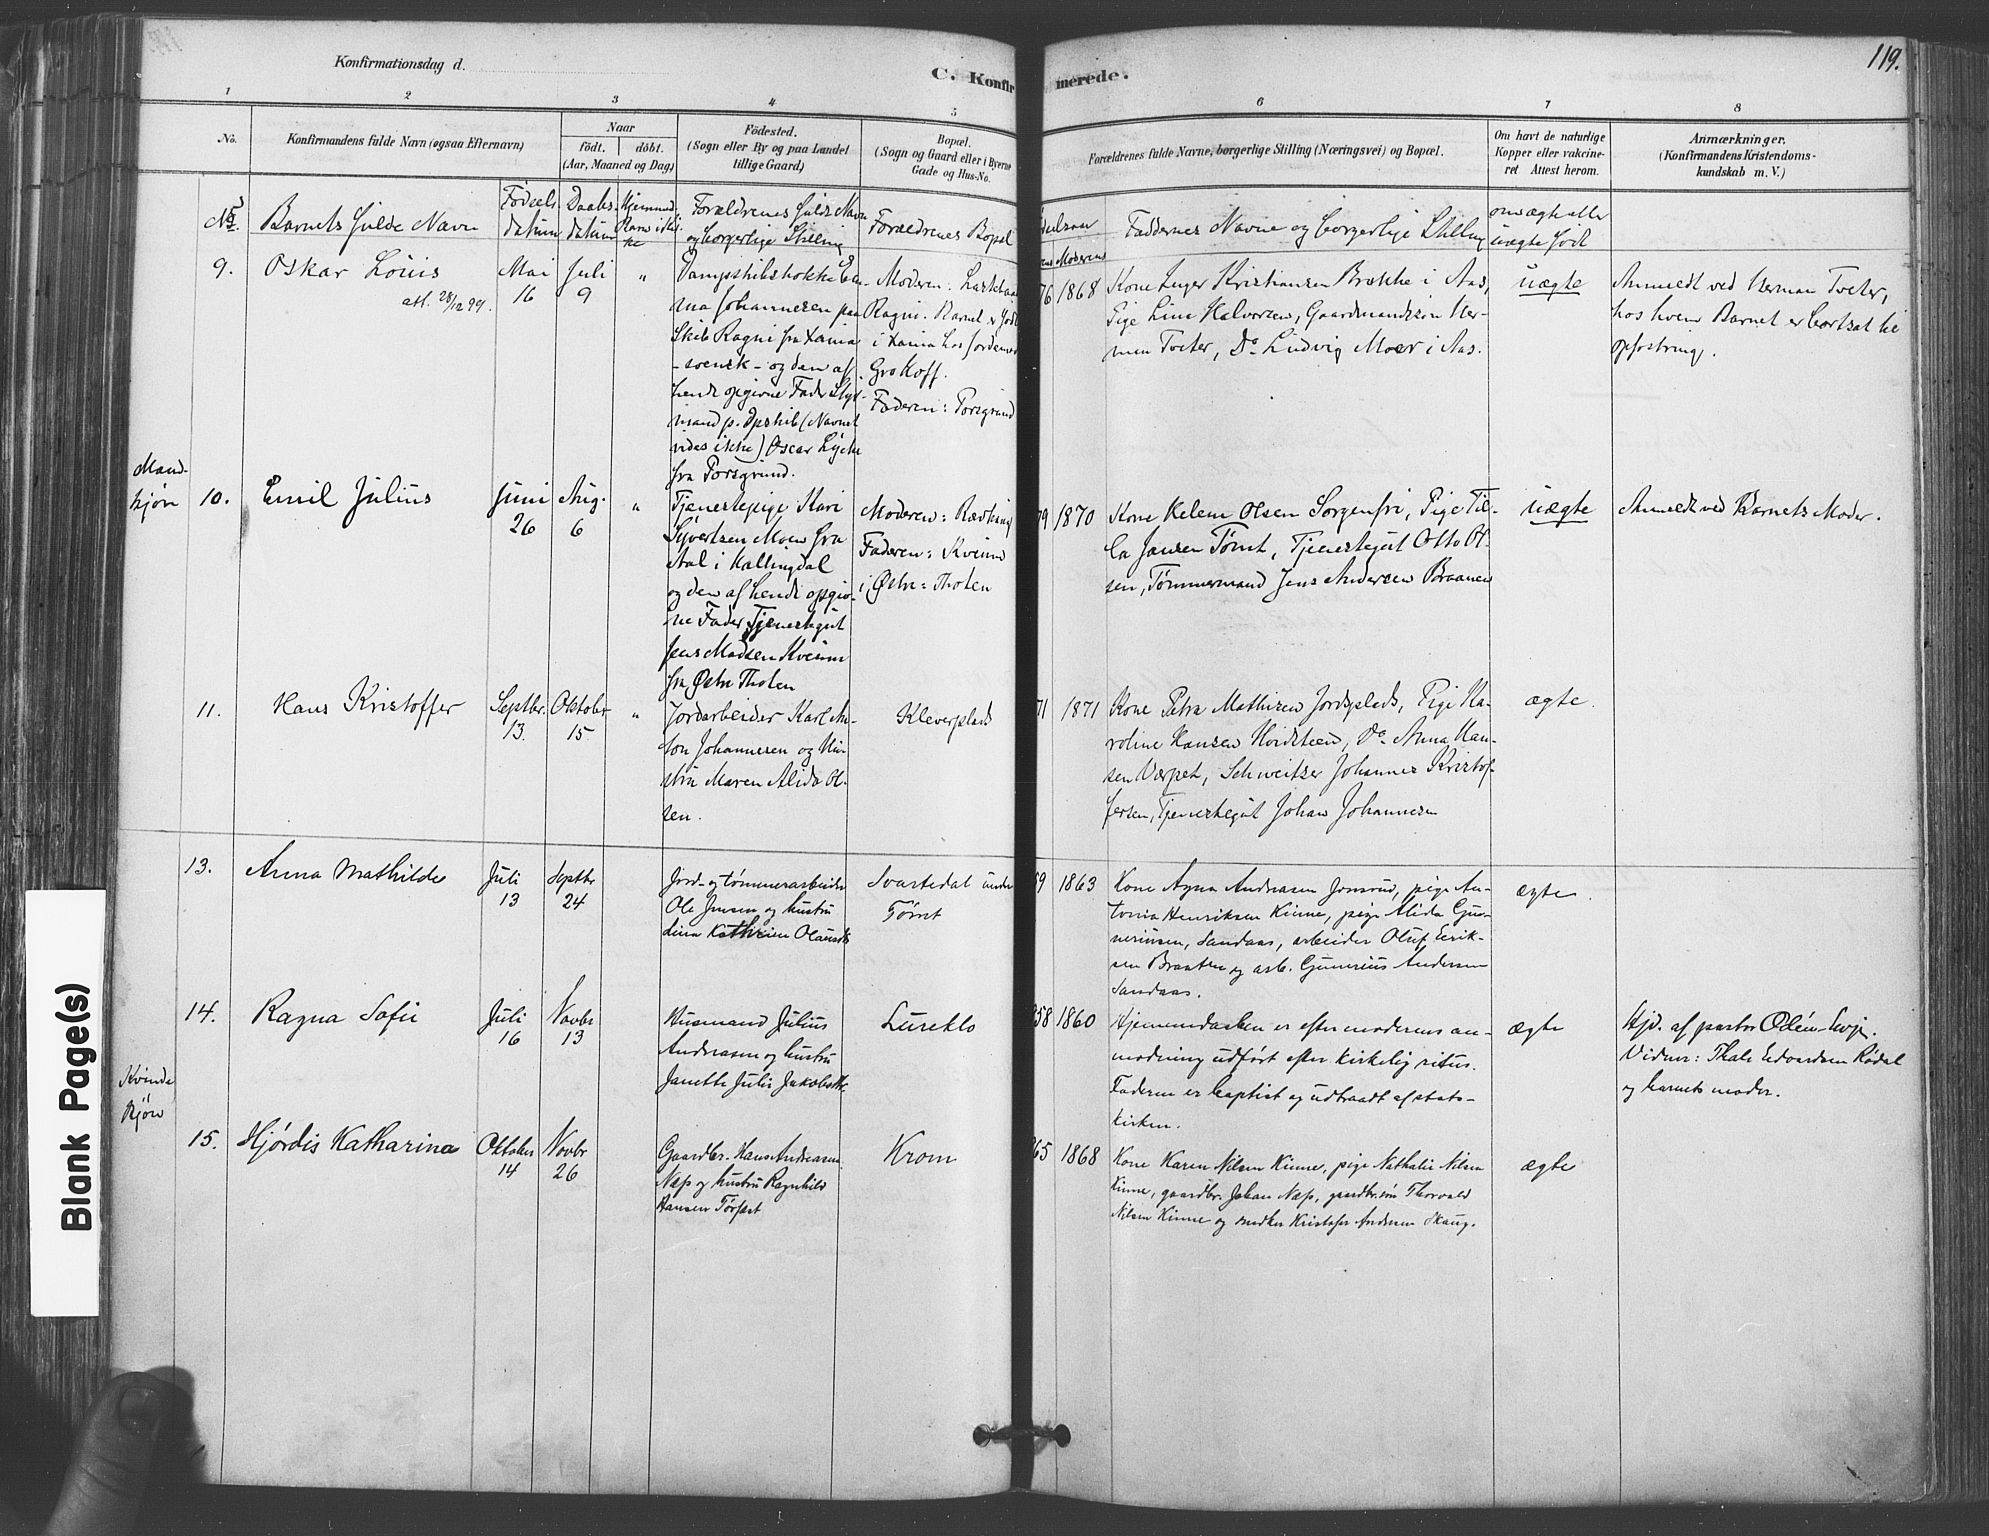 119.
Konfirmationsdag d.
C. Konfir
merede.
1 2 3 4 5 6 7 8
No.
Konfirmandens fulde Navn (ogsaa Efternavn)
Naar
födt. döbt.
(Aar, Maaned og Dag)
Födested.
(Sogn eller By og paa Landet
tillige Gaard)
Bopæl.
(Sogn og Gaard eller i Byerne
Gade og Hus-No.
Forældrenes fulde Navne, borgerlige Stilling (Næringsvei) og Bopæl.
Om havt de naturlige
Kopper eller vakcine-
ret Attest herom.
Anmærkninger.
(Konfirmandens Kristendoms-
kundskab m. V.)
No
Barnets fulde Navn
Fødsels
datum
Daabs
datum
Forældrenes fulde Navn
og borgerlige Stilling
Forældrenes Bopæl
Moderens
Faddernes Navne og borgerlige Stilling
om ægte eller
uægte født
Mand-
kjøn
9.
Oskar Louis
att. 28/12 99.
Mai
16
Juli
9
"
ma Johannesen paa
Skib Ragni fra Xania
- svensk - og den af
hende opgivne Fader Styr-
mand p. Dpskib (Navnet
vides ikke) Oscar Lycke
fra Porsgrund.
Moderen: Lastebaad
Ragni. Barnet er født
i Xania hos Jordemod
Gro Hoff.
Faderen: Porsgrund
76
1868
Kone Inger Kristiansen Brække i Aas,
Pige Lina Halvorsen, Gaardmandssøn Her-
man Tveter, Do Ludvig Moer i Aas.
uægte
Anmeldt ved Herman Tveter,
hos hvem Barnet er bortsat til
opfostring.
10.
Emil Julius
Juni
26
Aug.
6
"
Tjenestepige Kari
Syvertsen Moen fra
Aal i Hallingdal
og den af hende opgiv-
ne Fader Tjenestegut
Jens Madsen Kvem
fra Østre Thoten
Moderen: Ravhaug
Faderen: Kvem
i Østre Thoten
79
1870
Kone Helene Olsen Sorgenfri, Pige Til-
la Jansen Tømt, Tjenestegut Otto Ol-
sen, Tømmermand Jens Andersen Braanen
uægte
Anmeldt ved Barnets Moder.
11.
Hans Kristoffer
Septbr.
13.
Oktober
15
"
Jordarbeider Karl An-
ton Johannesen og Hu-
stru Maren Alida Ol-
sen.
Kleverplads
71
1871
Kone Petra Mathisen Jordsplads, Pige Ka-
roline Hansen Hvidsteen, Do Anna Han-
sen Værpet, Schweitser Johannes Kristof-
fersen, Tjenestegut Johan Johannesen
ægte.
13.
Anna Mathilde
Juli
13
Septbr
24
Jord- og tømmerarbeider
Ole Jensen og hustru
Lina Kathrine Olausdtr
Svartedal under
Tømt
59
1863
Kone Agna Andreasen Jonsrud, pige An-
tonia Henriksen Kinne, pige Alida Gun-
neriusen, Sandaas, arbeider Oluf Erik-
sen Braaten og arb. Gunerius Andersen
Sandaas.
ægte.
Kvinde
kjøn
14.
Ragna Sofie
Juli
16
Novbr
13
Husmand Julius
Andreasen og hustru
Janette Julie Jakobsdtr.
Lureklo
858
1860
Hjemmedaaben er efter moderens an-
modning udført efter kirkelig ritus.
Faderen er baptist og udtraadt af stats-
kirken.
ægte
Hjd. af pastor Odén-Evje.
Vidner: Thale Edvardsen Rødal
og barnets moder.
15.
Hjørdis Katharina
Oktober
14
Novbr
26
Gaardbr. Hans Andreasen
Næs og hustru Ragnhild
Hansen Tørfest
Krom
865
1868
Kone Karen Nilsen Kinne, pige Nathalie Nilsen
Kinne, gaardbr. Johan Næss, gaardbr.søn Thorvald
Nilsen Kinne og snedker Kristofer Andersen Skaug.
ægte
Blank Page(s)